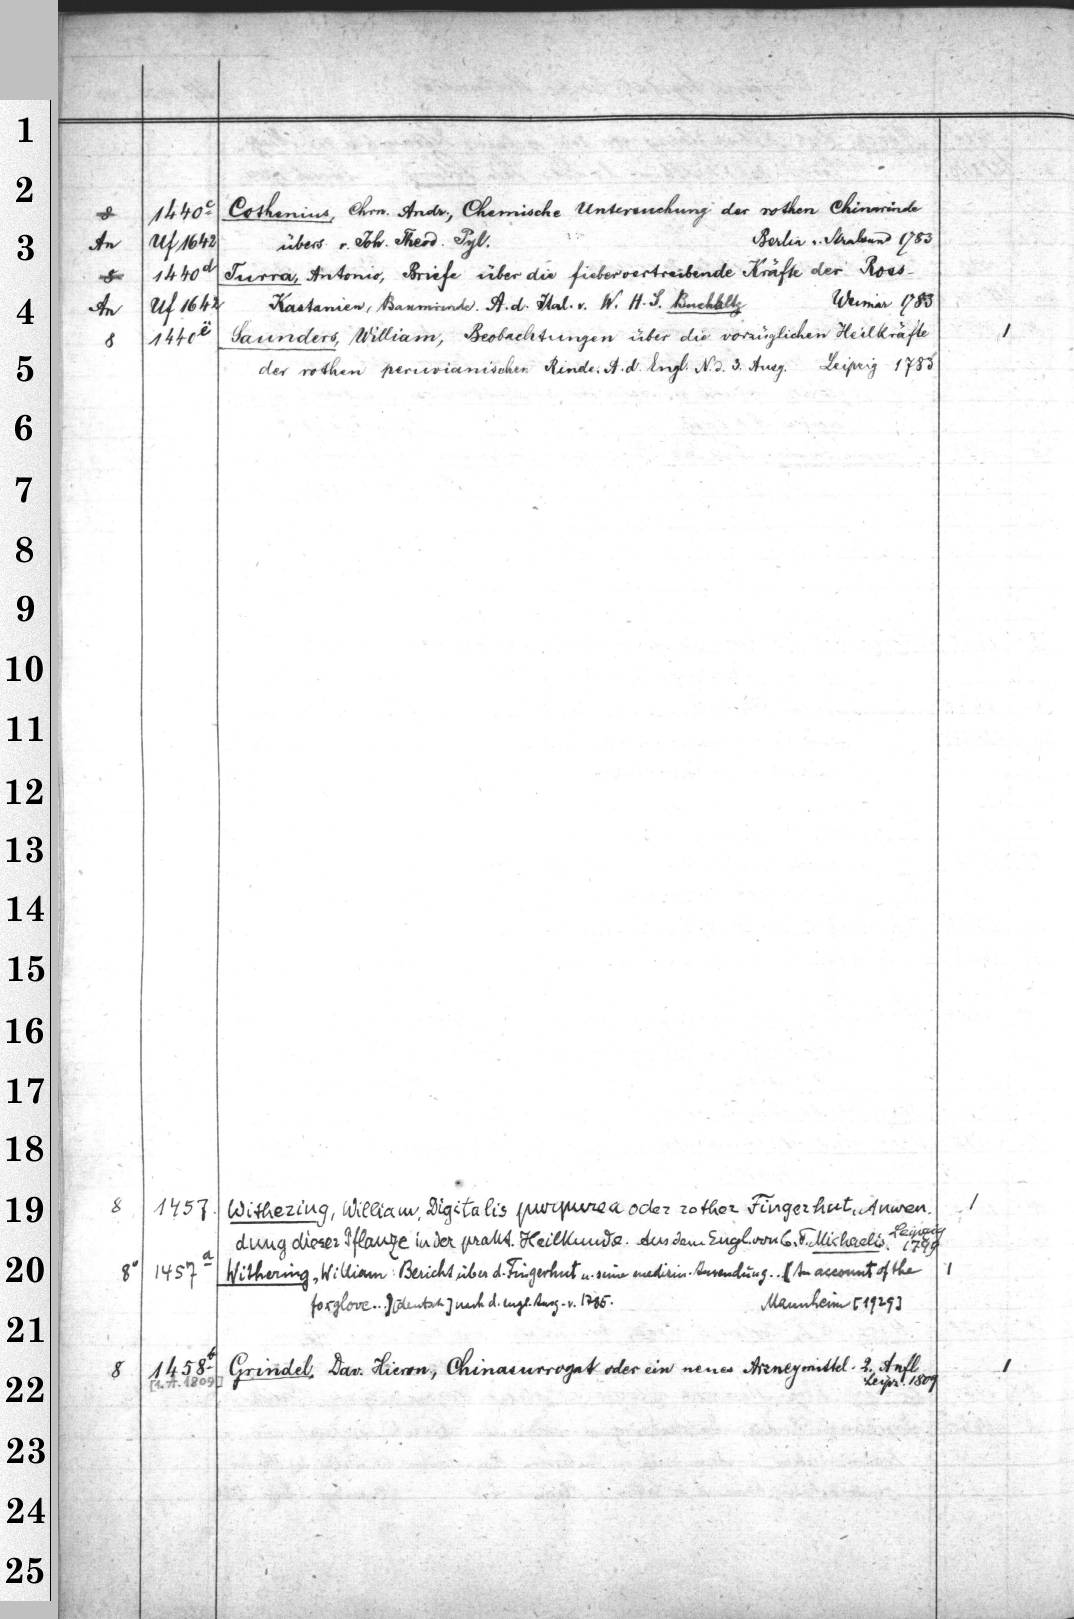 1
2
8 1440c Cothenius, Chrn. Andr., Chemische Untersuchung der rothen Chinarinde
3
An Uf 1642 übers v. Joh. Theod. Pyl. Berlin u. Stralsund 1783
8 1440d Turra, Antonio, Briefe über die fiebervertreibende Kräfte der Ross-
4
An Uf 1642 Kastanien, Baumrinde. A. d. Ital. v. W. H. S. Buchholtz Weimar 1783
8 1440e Saunders, William, Beobachtungen über die vorzüglichen Heilkräfte 1
5
der rothen peruvianischen Rinde. A. d. Engl. N. d. 3. Ausg. Leipzig 1783
6
7
8
9
10
11
12
13
14
15
16
17
18
19
8 1457. Withering, William, Digitalis purpurea oder rother Fingerhut, Anwen- 1
dung dieser Pflanze in der prakt. Heilkunde. Aus dem Engl. von C. F. Michaelis. Leipzig
1799
20
8° 1457a Withering, William: Bericht über d. Fingerhut u. seine medizin. Anwendung.. [An account of the 1
foxglove..] [deutsch] nach d. engl. Ausg. v. 1785. Mannheim [1929]
21
8 1458b Grindel, Dav. Hieron., Chinasurrogat oder ein neues Arzneymittel. 2. Aufl 1
22
[1. A. 1809] Leipz. 1809
23
24
25